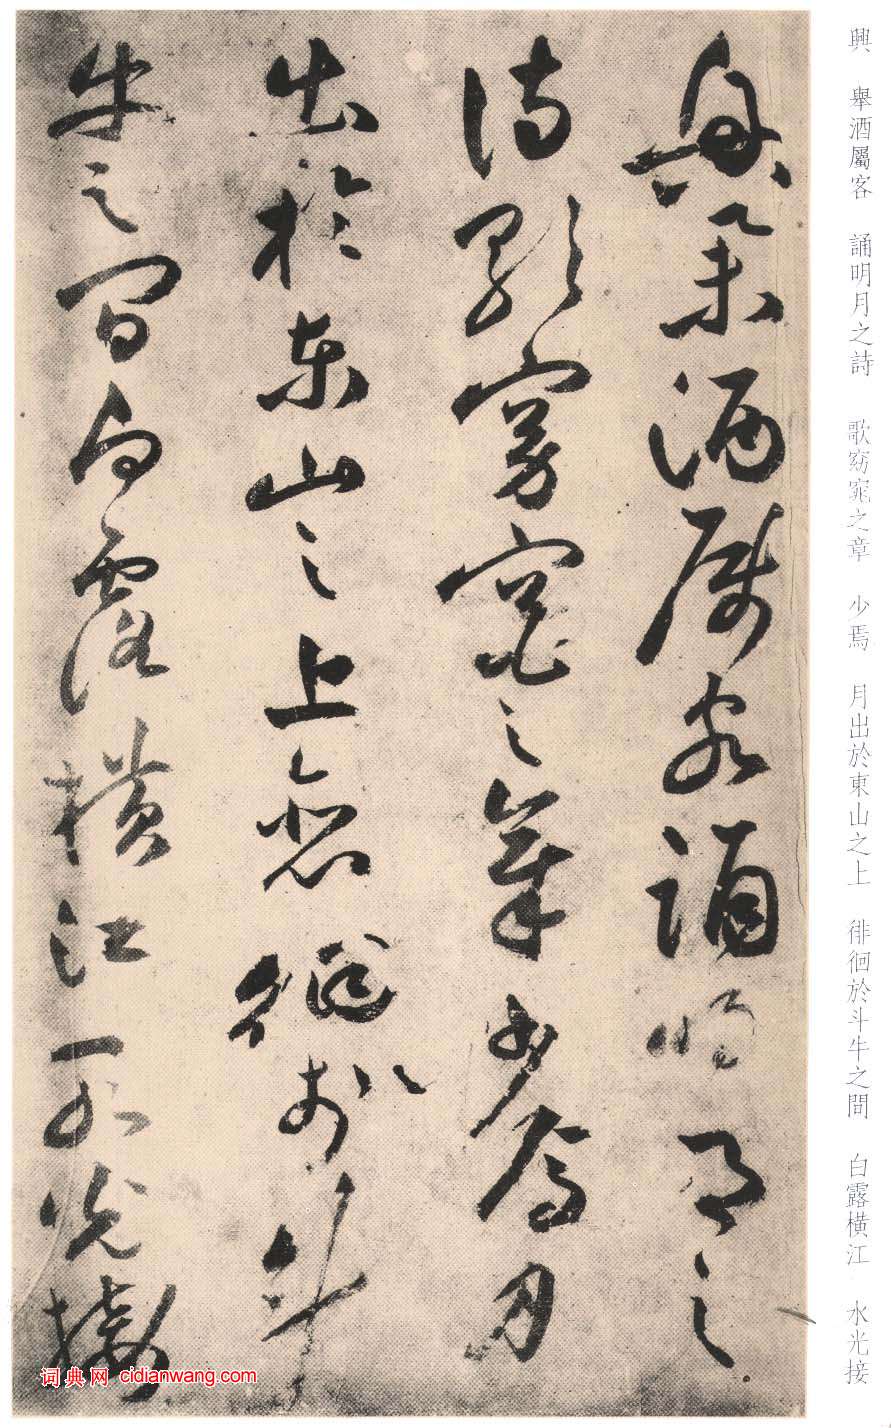 興　舉酒屬客　誦明月之詩　歌窈窕之章　少焉　月出於東山之上　徘徊於斗牛之間　白露橫江　水光接
興舉酒屬客誦明月之
詩歌窈窕之章少焉月
出於東山之上徘徊於斗
牛之間白露橫江水光接
词典网 cidianwang.com